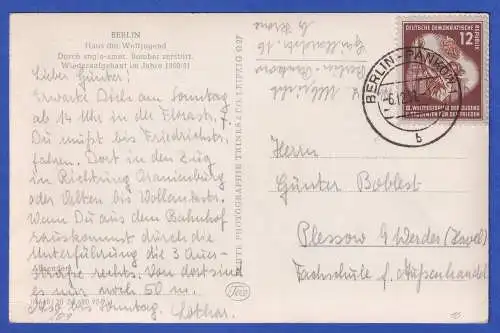 BERLIN
Haus der Weltjugend
Durch anglo-amer. Bomber zerstört.
Wiederaufgebaut im Jahre 1950/51
Lieber Günter!
Erwarte Dich am Sonntag
ab 14 Uhr in der Florastr. 7.
Du mußt bis Friedrichstr.
fahren. Dort in den Zug
in Richtung Oranienburg
oder Velten bis Wollankstr.
Wenn Du aus dem Bahnhof
rauskommst durch die
Unterführung die 3 Aus-
straße rechts. Von dort sind
es nur noch 50 m.
Also bis Sonntag. Lothar.
Absender:
ECHTE PHOTOGRAPHIE
Berlin-Pankow
DEUTSCHE DEMOKRATISCHE REPUBLIK
12
III. WELTFESTSPIELE DER JUGEND
UND STUDENTEN FÜR DEN FRIEDEN
BERLIN-PANKOW 1
b
Herrn
Günter Boblest
Plessow ü/Werder (Havel)
Fachschule f. Außenhandel